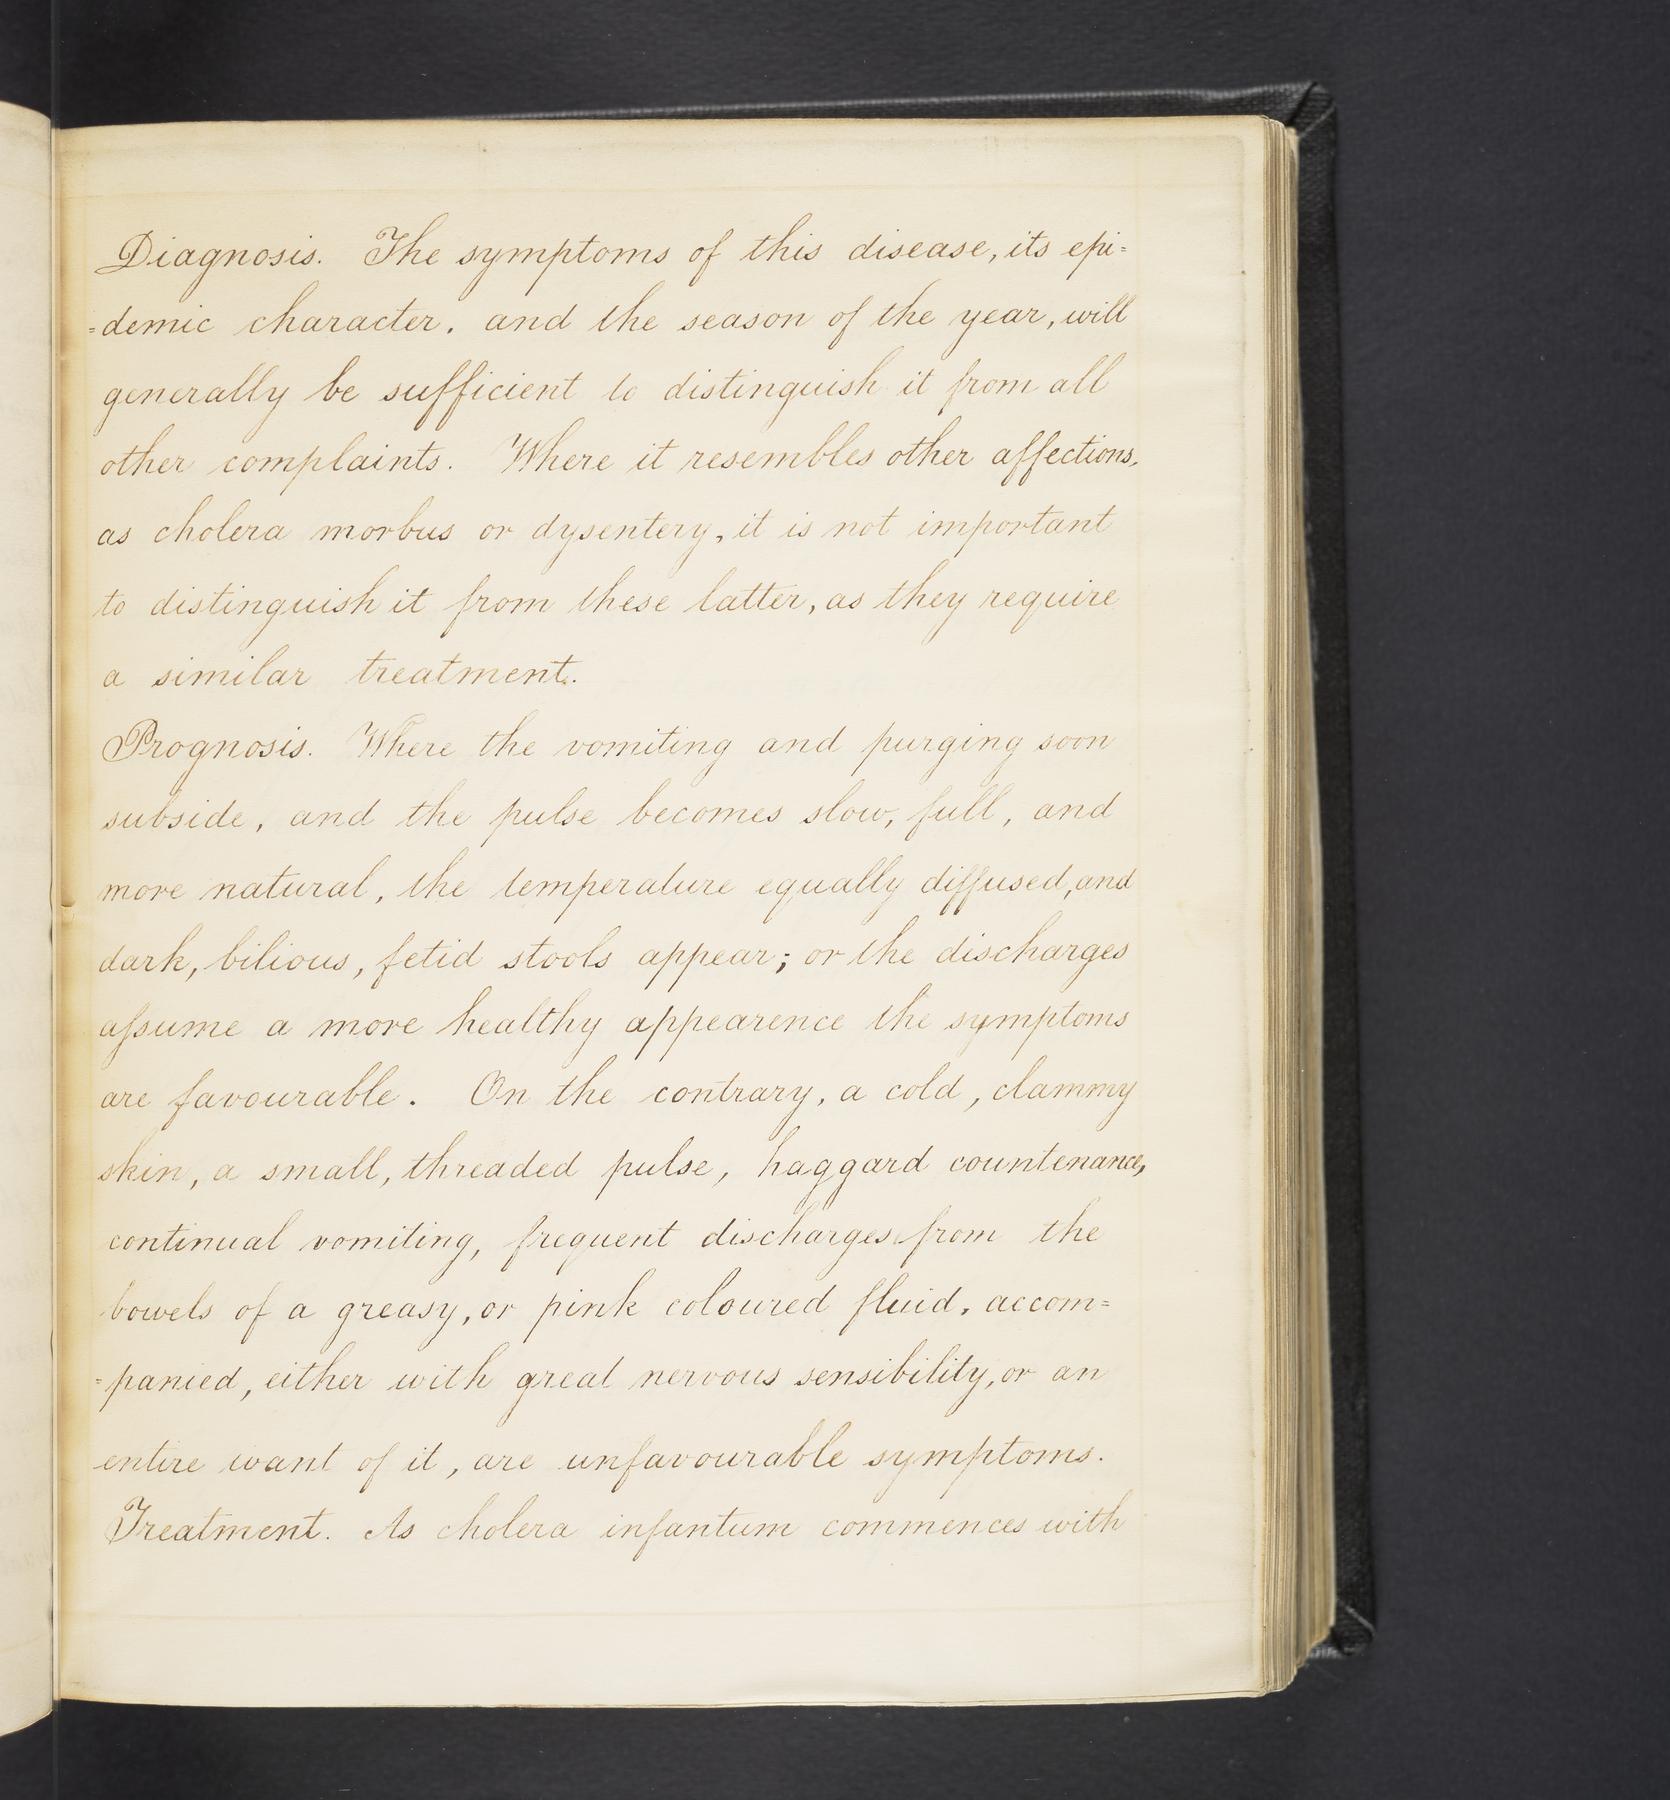 Diagnosis. The symptoms of this disease, its epi=
=demic character, and the season of the year, will
generally be sufficient to distinguish it from all
other complaints. Where it resembles other affections,
as cholera morbus or dysentery, it is not important
to distinguish it from these latter, as they require
a similar treatment.
Prognosis. Where the vomiting and purging soon
subside, and the pulse becomes slow, full, and
more natural, the temperature equally diffused, and
dark, bilious, fetid stools appear; or the discharges
aſsume a more healthy appearence the symptoms
are favourable. On the contrary, a cold, clammy
skin, a small, threaded pulse, haggard countenance,
continual vomiting, frequent discharges from the
bowels of a greasy, or pink coloured fluid, accom=
=panied, either with great nervous sensibility, or an
entire want of it, are unfavourable symptoms.
Treatment. As cholera infantum commences with